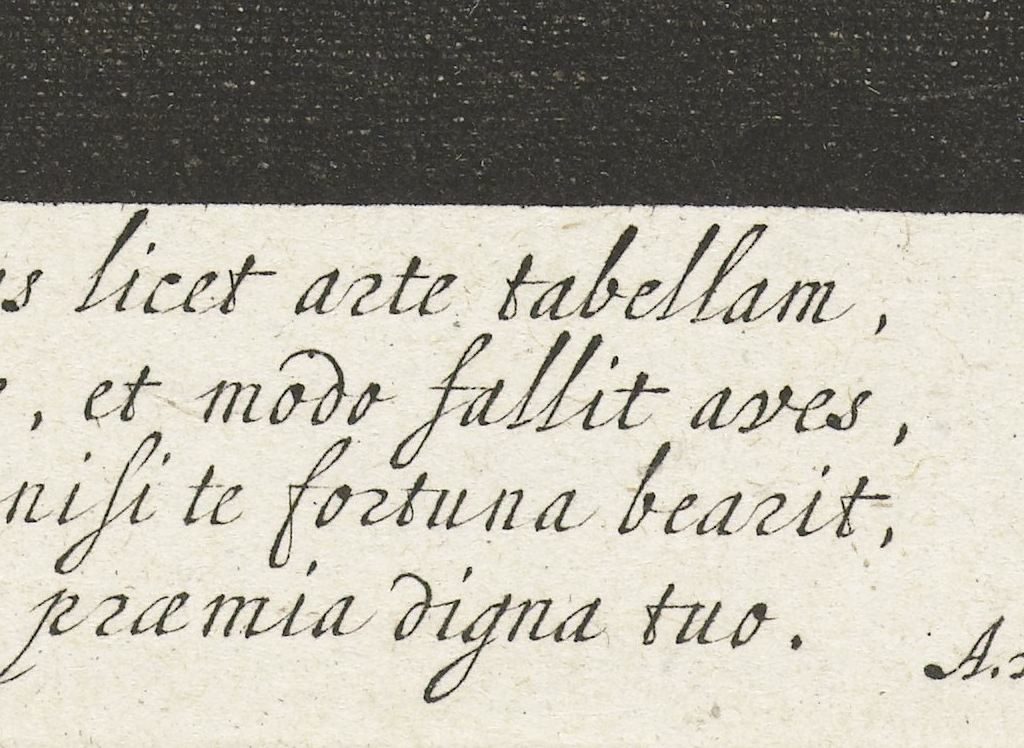 licet arte tabellam,
, et modo fallit aves,
nisi te fortuna bearit,
præmia digna tuo.
A.